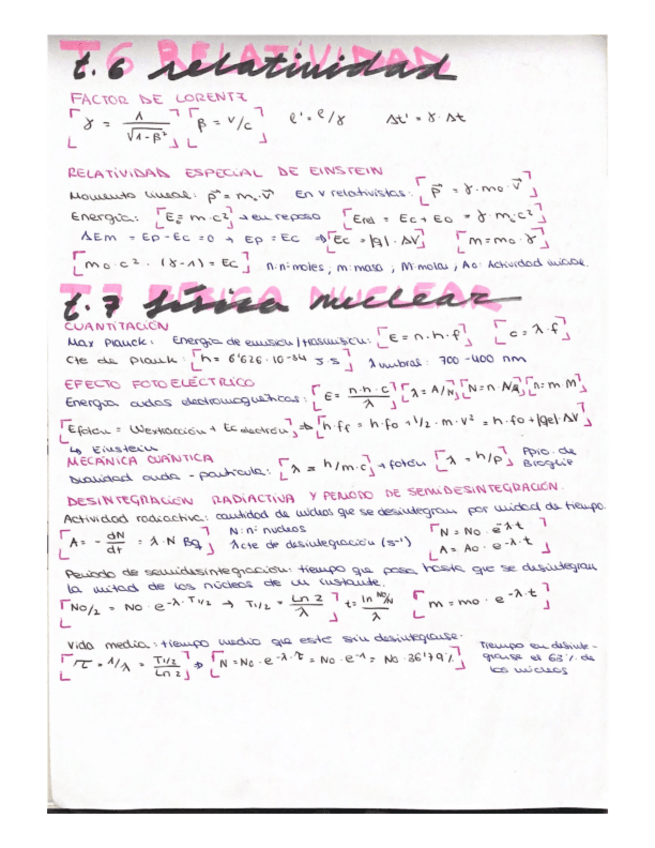 t.6 relatividad
FACTOR DE LORENTZ
γ = 1/√1-β² β = v/c l' = l/γ Δt' = γ · Δt
RELATIVIDAD ESPECIAL DE EINSTEIN
Momento lineal: p⃗ = m₀·v⃗ En v relativistas: p⃗ = γ·m₀·v⃗
Energía: E₀ = m·c² → en reposo Erel = Ec + E₀ = γ·m₀c²
ΔEm = Ep - Ec = 0 → Ep = Ec ⇒ Ec = |q|·ΔV m = m₀·γ
m₀·c²·(γ-1) = Ec n: nº moles, m: masa, M: molar, A₀: Actividad inicial
t.7 física nuclear
CUANTITACIÓN
Max Planck: Energía de emisión/trasmisión: E = n·h·f c = λ·f
Cte de Planck: h = 6'626·10-34 J·s λ umbral: 700-400 nm
EFECTO FOTOELÉCTRICO
Energía ondas electromagnéticas: E = n·h·c/λ λ = A/N N = n·NA n = m·M
Efotón = Wextracción + Ec electrón ⇒ h·ff = h·f₀ + 1/2·m·v² = h·f₀ + |qe|·ΔV
↳ Einstein
MECÁNICA CUÁNTICA
Dualidad onda-partícula: λ = h/m·c → fotón λ = h/p Ppio. de
Broglie
DESINTEGRACIÓN RADIACTIVA Y PERIODO DE SEMIDESINTEGRACIÓN.
Actividad radiactiva: cantidad de núcleos que se desintegran por unidad de tiempo.
A = - dN/dt = λ·N Bq N: nº núcleos N = N₀·e-λt
λ cte de desintegración (s⁻¹) A = A₀·e-λ·t
Periodo de semidesintegración: tiempo que pasa hasta que se desintegran
la mitad de los núcleos de un instante.
N₀/2 = N₀·e-λ·T1/2 → T1/2 = Ln 2/λ t = ln N₀/N/λ m = m₀·e-λ·t
Vida media: tiempo medio que esté sin desintegrarse.
τ = 1/λ = T1/2/Ln 2 ⇒ N = N₀·e-λ·τ = N₀·e⁻¹ = N₀·36'79% Tiempo en desinte-
grarse el 63% de
los núcleos